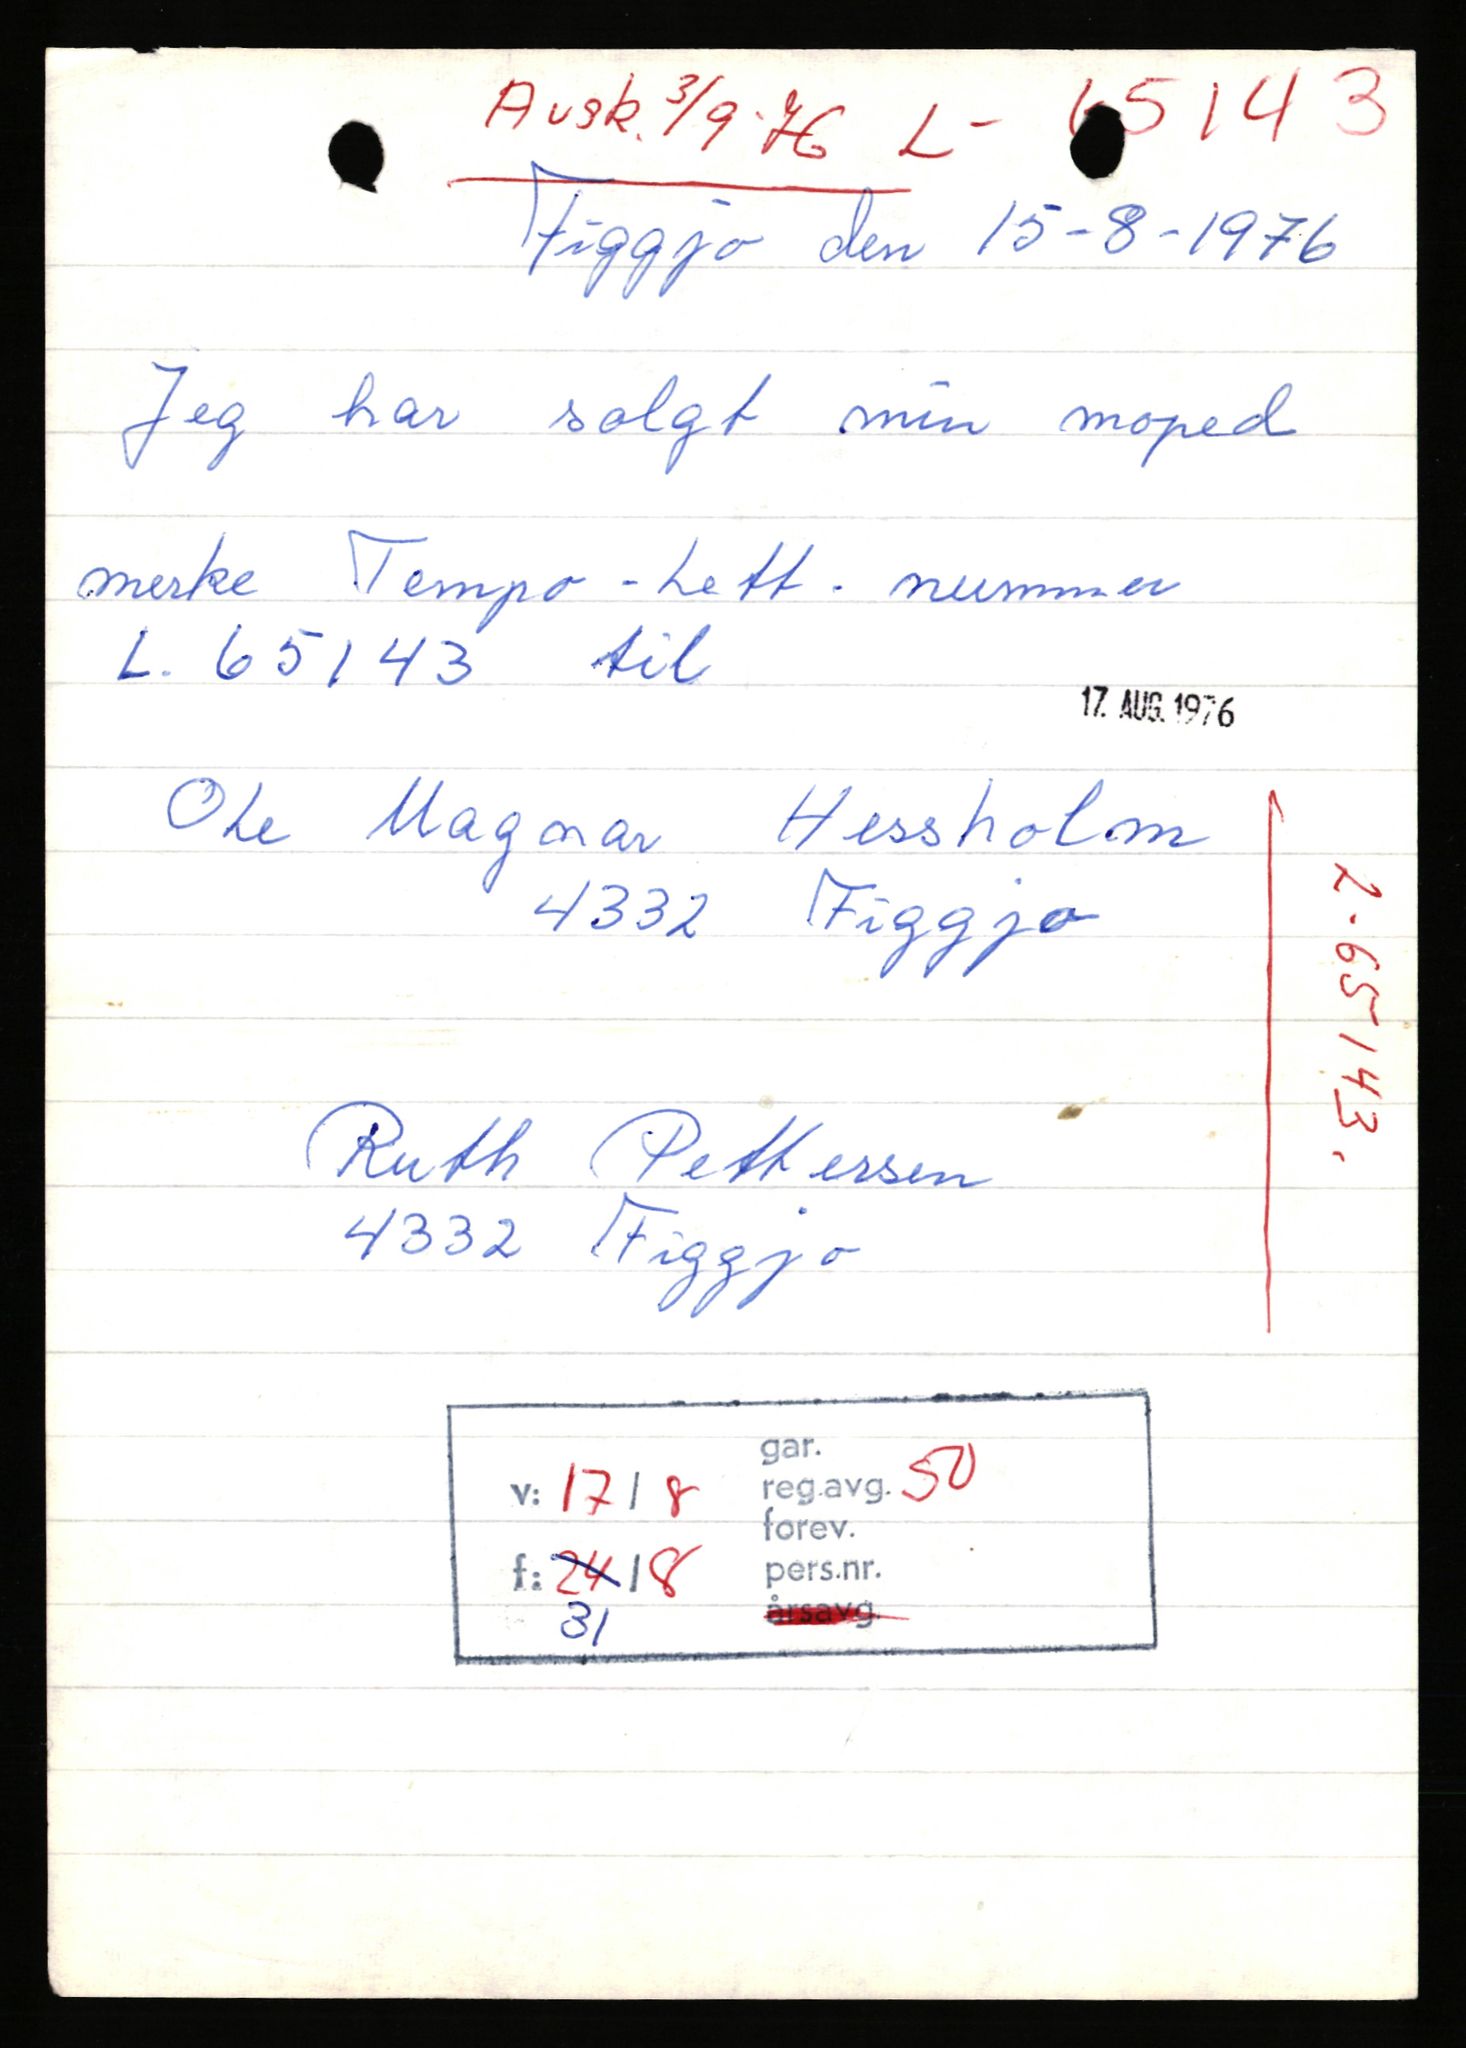 Avsk. 3/9-76 L-65143
Figgjo den 15-8-1976
Jeg har solgt min moped
merke Tempo-Lett. nummer
L. 65143 til
17. AUG. 1976
Ole Magnar Hessholm
4332 Figgjo
2-65143.
Ruth Pettersen
4332 Figgjo
gar.
v: 17/8 reg.avg. 50
forev.
f: 24/8 pers.nr.
31 årsavg.